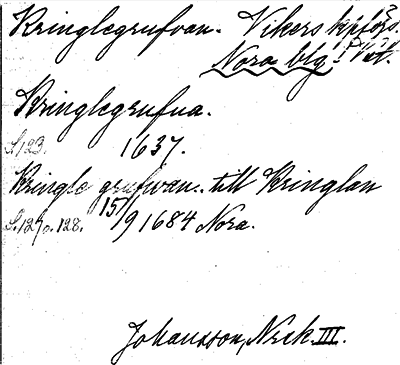 Kringlegrufvan. Vikers kpförs.
Nora blg! Vstm.
Kringlegrufua.
S. 123. 1637.
Kringle grufwan.. till Kringlan
S. 127 o. 128. 15/9 1684 Nora.
Johansson, Nrck. III.